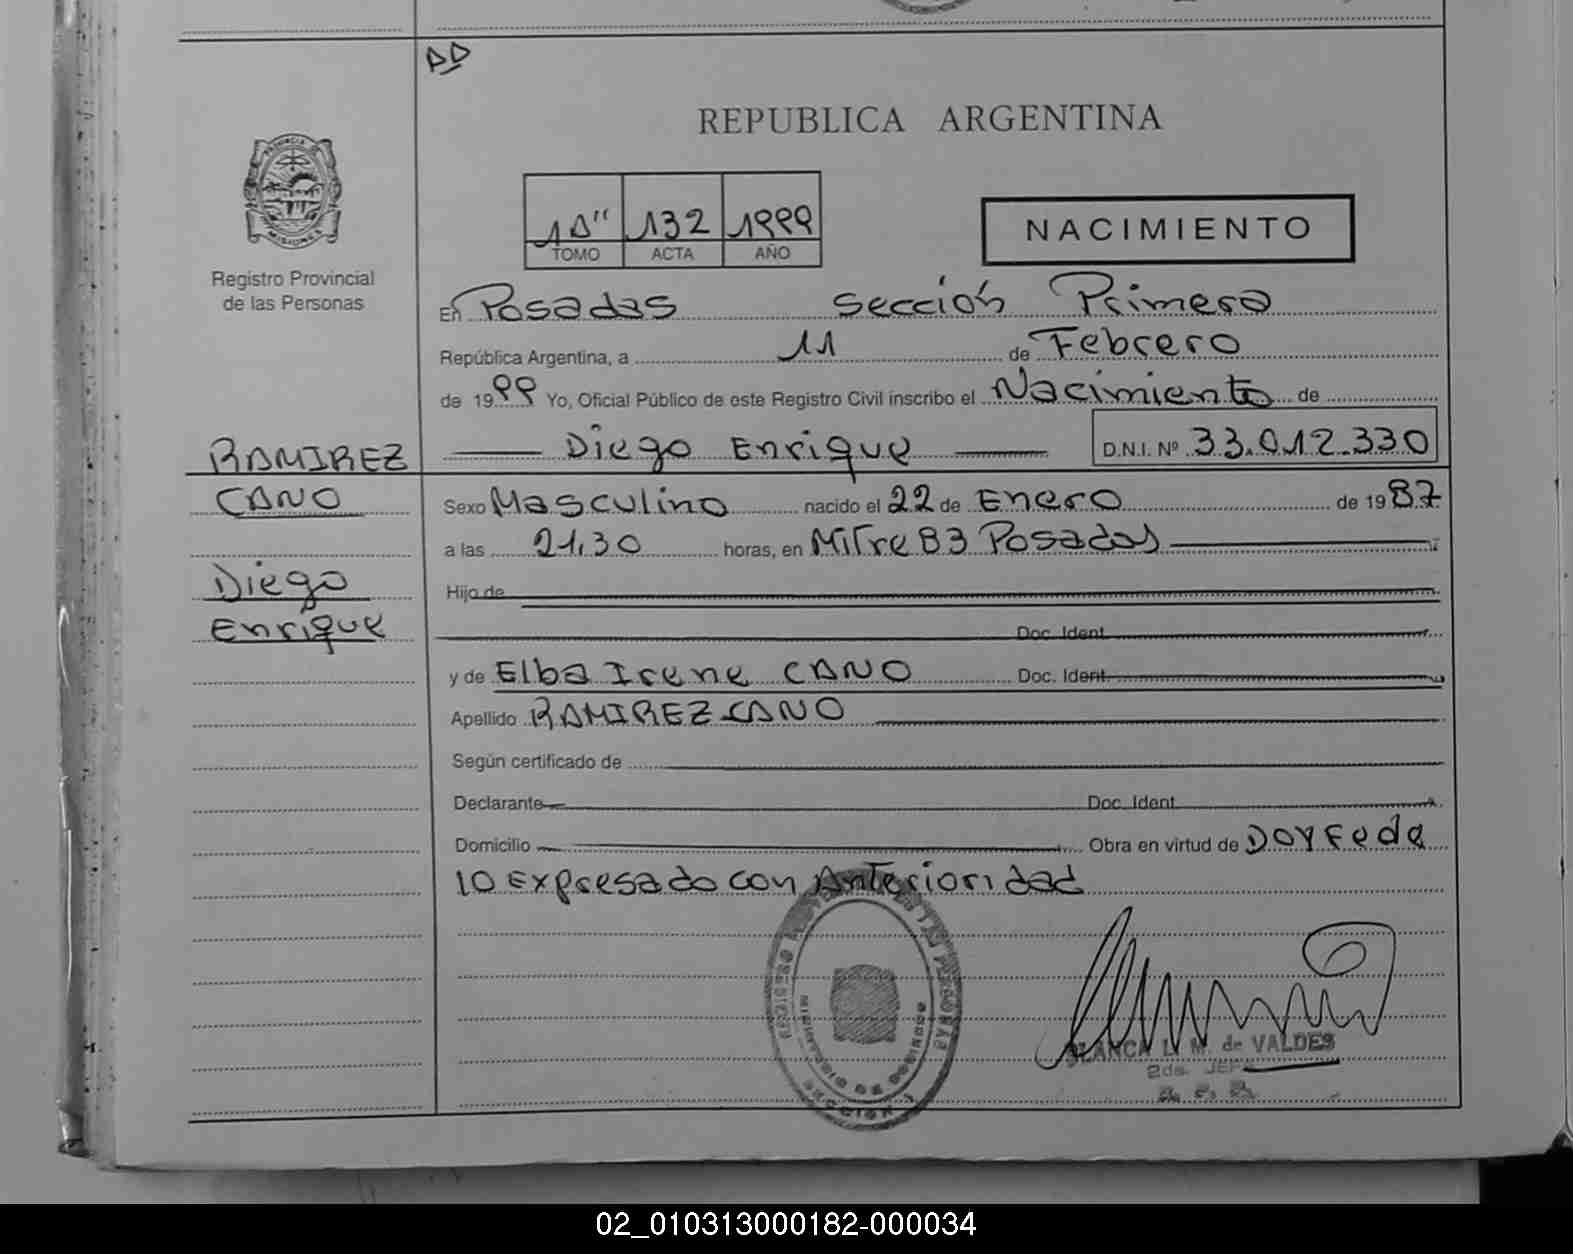 AD
REPUBLICA ARGENTINA
PROVINCIA DE
MISIONES
Registro Provincial
de las Personas
1A" 132 1999
TOMO ACTA AÑO
NACIMIENTO
En Posadas Sección Primera
República Argentina, a 11 de Febrero
de 1999 Yo, Oficial Público de este Registro Civil inscribo el Nacimiento de
RAMIREZ
CANO
Diego
Enrique
Diego Enrique D.N.I. Nº 33.012.330
Sexo Masculino nacido el 22 de Enero de 1987
a las 21,30 horas, en Mitre 83 Posadas
Hijo de
Doc. Ident.
y de Elba Irene CANO Doc. Ident.
Apellido RAMIREZ CANO
Según certificado de
Declarante Doc. Ident.
Domicilio Obra en virtud de DOY Fe de
lO Expresado con Anterioridad
MINISTERIO DE GOBIERNO
SECCION 1
BLANCA L. M. de VALDES
2da. JEFE
02_010313000182-000034